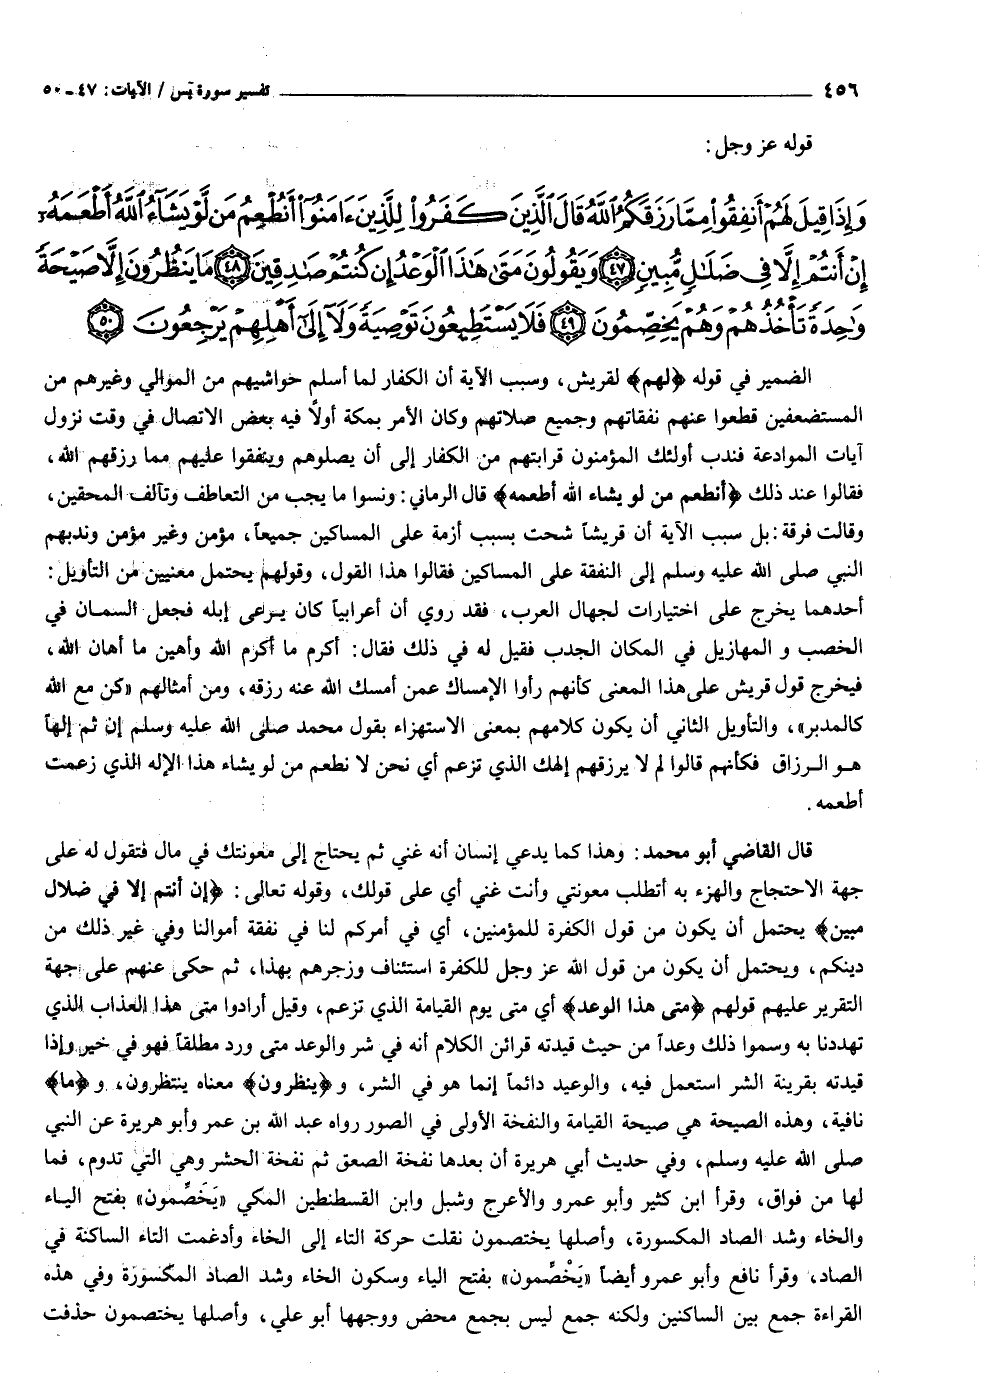 ٤٥٦ تفسير سورة يٓس / الآيات: ٤٧ـ٥٠
قوله عز وجل:
وَإِذَا قِيلَ لَهُمْ أَنفِقُوا۟ مِمَّا رَزَقَكُمُ ٱللَّهُ قَالَ ٱلَّذِينَ كَفَرُوا۟ لِلَّذِينَ ءَامَنُوٓا۟ أَنُطْعِمُ مَن لَّوْ يَشَآءُ ٱللَّهُ أَطْعَمَهُۥٓ
إِنْ أَنتُمْ إِلَّا فِى ضَلَٰلٍ مُّبِينٍ ﴿٤٧﴾ وَيَقُولُونَ مَتَىٰ هَٰذَا ٱلْوَعْدُ إِن كُنتُمْ صَٰدِقِينَ ﴿٤٨﴾ مَا يَنظُرُونَ إِلَّا صَيْحَةً
وَٰحِدَةً تَأْخُذُهُمْ وَهُمْ يَخِصِّمُونَ ﴿٤٩﴾ فَلَا يَسْتَطِيعُونَ تَوْصِيَةً وَلَآ إِلَىٰٓ أَهْلِهِمْ يَرْجِعُونَ ﴿٥٠﴾
الضمير في قوله ﴿لهم﴾ لقريش، وسبب الآية أن الكفار لما أسلم حواشيهم من الموالي وغيرهم من
المستضعفين قطعوا عنهم نفقاتهم وجميع صلاتهم وكان الأمر بمكة أولاً فيه بعض الاتصال في وقت نزول
آيات الموادعة فندب أولئك المؤمنون قرابتهم من الكفار إلى أن يصلوهم وينفقوا عليهم مما رزقهم الله،
فقالوا عند ذلك ﴿أنطعم من لو يشاء الله أطعمه﴾ قال الرماني: ونسوا ما يجب من التعاطف وتآلف المحقين،
وقالت فرقة: بل سبب الآية أن قريشاً شحت بسبب أزمة على المساكين جميعاً، مؤمن وغير مؤمن وندبهم
النبي صلى الله عليه وسلم إلى النفقة على المساكين فقالوا هذا القول، وقولهم يحتمل معنيين من التأويل:
أحدهما يخرج على اختيارات لجهال العرب، فقد روي أن أعرابياً كان يرعى إبله فجعل السمان في
الخصب و المهازيل في المكان الجدب فقيل له في ذلك فقال: أكرم ما أكرم الله وأهين ما أهان الله،
فيخرج قول قريش على هذا المعنى كأنهم رأوا الإمساك عمن أمسك الله عنه رزقه، ومن أمثالهم «كن مع الله
كالمدبر»، والتأويل الثاني أن يكون كلامهم بمعنى الاستهزاء بقول محمد صلى الله عليه وسلم إن ثم إلهاً
هو الرزاق فكأنهم قالوا لم لا يرزقهم إلهك الذي تزعم أي نحن لا نطعم من لو يشاء هذا الإله الذي زعمت
أطعمه.
قال القاضي أبو محمد: وهذا كما يدعي إنسان أنه غني ثم يحتاج إلى معونتك في مال فتقول له على
جهة الاحتجاج والهزء به أتطلب معونتي وأنت غني أي على قولك، وقوله تعالى: ﴿إن أنتم إلا في ضلال
مبين﴾ يحتمل أن يكون من قول الكفرة للمؤمنين، أي في أمركم لنا في نفقة أموالنا وفي غير ذلك من
دينكم، ويحتمل أن يكون من قول الله عز وجل للكفرة استئناف وزجرهم بهذا، ثم حكى عنهم على جهة
التقرير عليهم قولهم ﴿متى هذا الوعد﴾ أي متى يوم القيامة الذي تزعم، وقيل أرادوا متى هذا العذاب الذي
تهددنا به وسموا ذلك وعداً من حيث قيدته قرائن الكلام أنه في شر والوعد متى ورد مطلقاً فهو في خير وإذا
قيدته بقرينة الشر استعمل فيه، والوعيد دائماً إنما هو في الشر، و ﴿ينظرون﴾ معناه ينتظرون، و ﴿ما﴾
نافية، وهذه الصيحة هي صيحة القيامة والنفخة الأولى في الصور رواه عبد الله بن عمر وأبو هريرة عن النبي
صلى الله عليه وسلم، وفي حديث أبي هريرة أن بعدها نفخة الصعق ثم نفخة الحشر وهي التي تدوم، فما
لها من فواق، وقرأ ابن كثير وأبو عمرو والأعرج وشبل وابن القسطنطين المكي «يَخَصِّمون» بفتح الياء
والخاء وشد الصاد المكسورة، وأصلها يختصمون نقلت حركة التاء إلى الخاء وأدغمت التاء الساكنة في
الصاد، وقرأ نافع وأبو عمرو أيضاً «يَخْصِّمون» بفتح الياء وسكون الخاء وشد الصاد المكسورة وفي هذه
القراءة جمع بين الساكنين ولكنه جمع ليس بجمع محض ووجهها أبو علي، وأصلها يختصمون حذفت